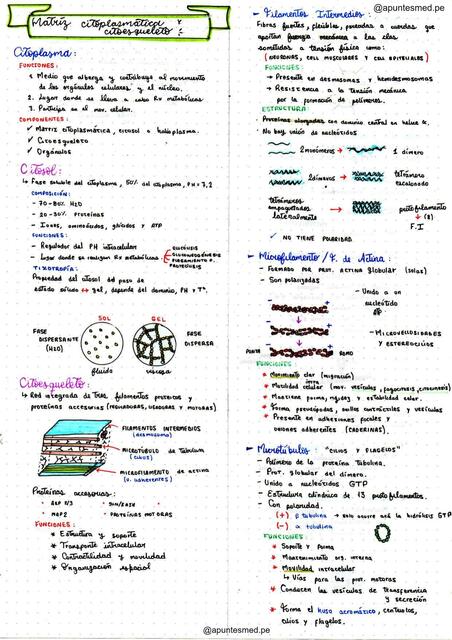 @apuntesmed.pe
Matriz citoplasmática y
citoesqueleto
Citoplasma:
FUNCIONES:
1. Medio que alberga y contribuye al movimiento
de los orgánulos celulares y el núcleo.
2. Lugar donde se lleva a cabo Rx metabólicas
3. Participa en el mov. celular.
COMPONENTES:
✓ Matriz citoplasmática, citosol o hialoplasma.
✓ Citoesqueleto
✓ Orgánulos
Citosol:
↳ Fase soluble del citoplasma, 50% del citoplasma, PH = 7,2
COMPOSICIÓN:
- 70-80% H2O
- 20-30% proteínas
- Iones, aminoácidos, glúcidos y ATP
FUNCIONES:
- Regulador del PH intracelular
- Lugar donde se realizan Rx metabólicas
GLUCÓLISIS
GLUCONEOGÉNESIS
PROTEÓLISIS
TIXOTROPÍA:
Propiedad del citosol del paso de
estado sólido ↔ gel, depende del dominio, PH y Tº.
SOL
GEL
FASE
DISPERSANTE
(H2O)
FASE
DISPERSA
fluido
viscosa
Citoesqueleto:
↳ Red integrada de tres filamentos proteicos y
proteínas accesorias (reguladoras, ligadoras y motoras)
FILAMENTOS INTERMEDIOS
(desmosomas)
MICROTÚBULO de tubulina
(cilios)
MICROFILAMENTO de actina
(u. adherentes)
Proteínas accesorias:
- ARP 2/3
- MAP2
- PROTEÍNAS MOTORAS
FUNCIONES:
* Estructura y soporte
* Transporte intracelular
* Contractilidad y movilidad
* Organización espacial
- Filamentos Intermedios:
Fibras fuertes, flexibles, parecidas a cuerdas que
aportan fuerza mecánica a las cels
sometidas a tensión física como:
(NEURONAS, CELL MUSCULARES Y CELL EPITELIALES)
FUNCIONES:
→ Presente en desmosomas y hemidesmosomas
→ Resistencia a la tensión mecánica
por la formación de polímeros.
ESTRUCTURA:
Proteínas alargadas con dominio central en hélice α.
No hay unión de nucleótidos
2 monómeros → 1 dímero
2 dímeros → tetrámero
escalonado
tetrámeros
empaquetados
lateralmente → protofilamento
(8)
F.I
✓ NO TIENE POLARIDAD
- Microfilamento / F. de Actina:
- Formado por prot. actina globular (solas)
- Son polarizadas
- Unido a un
nucleótido
- MICROVELLOSIDADES
Y ESTEREOCILIOS
FUNCIONES
* Movimiento celular (migración)
* Motilidad intracelular (mov. vesículas, fagocitosis, citocinesis)
* Mantiene forma, rigidez y estabilidad celular.
* Forma pseudópodos, anillos contráctiles y vesículas
* Presente en adhesiones focales y
uniones adherentes (CADERINAS).
- Microtúbulos: "CILIOS Y FLAGELOS"
- Polímero de la proteína tubulina.
- Prot. globular del dímero.
- Unido a nucleótidos GTP
- Estructura cilíndrica de 13 protofilamentos.
- Con polaridad.
(+) β tubulina → solo ocurre acá la hidrólisis GTP
(-) α tubulina
FUNCIONES:
* Soporte y forma
* Mantenimiento org. interna
* Movilidad intracelular
↳ Vías para las prot. motoras
* Conducen las vesículas de transferencia
y secreción
* Forma el huso acromático, centríolos,
cilios y flagelos.
@apuntesmed.pe